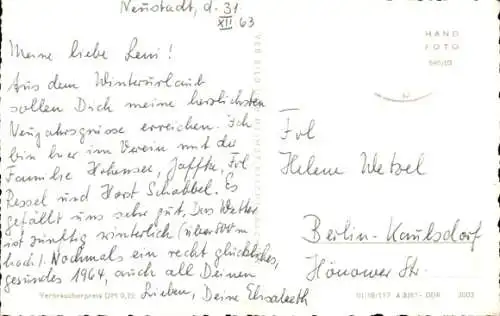 Neustadt, d. 31.
XII 63
Meine liebe Leni!
Aus dem Winterurlaub
sollen Dich meine herzlichsten
Neujahrsgrüsse erreichen. Ich
bin hier im Verein mit der
Familie Hohensee, Jaffke, Frl
Ressel und Horst Schabbel. Es
gefällt uns sehr gut. Das Wetter
ist zünftig winterlich (über 800 m
hoch). Nochmals ein recht glückliches,
gesundes 1964, auch all Deinen
Lieben, Deine Elisabeth
HAND
FOTO
Frl
Helene Wetzel
Berlin-Kaulsdorf
Hönower Str.
VEB BILD UND HEIMAT
Verbraucherpreis DM 0,20
A 3/87 · DDR 3003